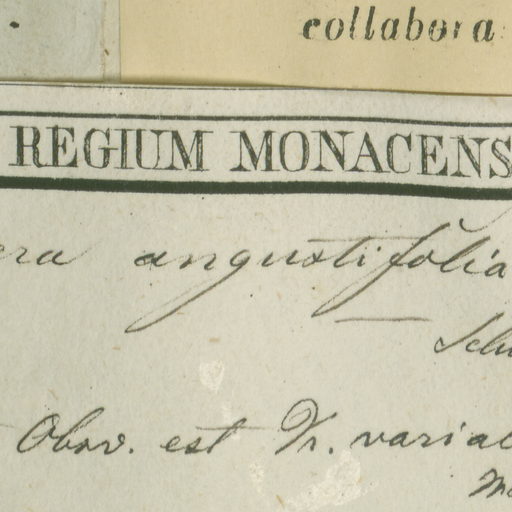 collabora
REGIUM MONACENS
era angustifolia
Schu
Obsv. est Tr. variac